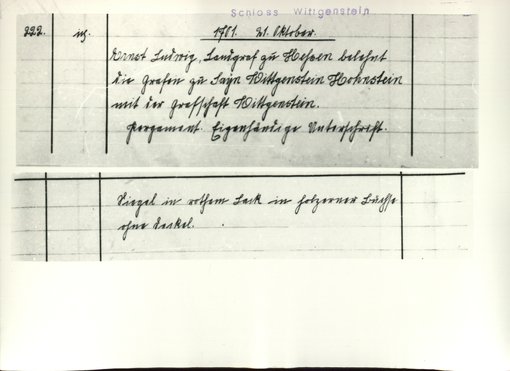 Schloss Wittgenstein
222. 1701. 21. Oktober.
Ernst Ludwig, Landgraf zu Hessen belehnt
die Grafen zu Sayn Wittgenstein Hohnstein
mit der Grafschaft Wittgenstein.
Pergament. Eigenhändige Unterschrift.
Siegel in rothem Lack in holzerner Buchse
ohne Deckel.